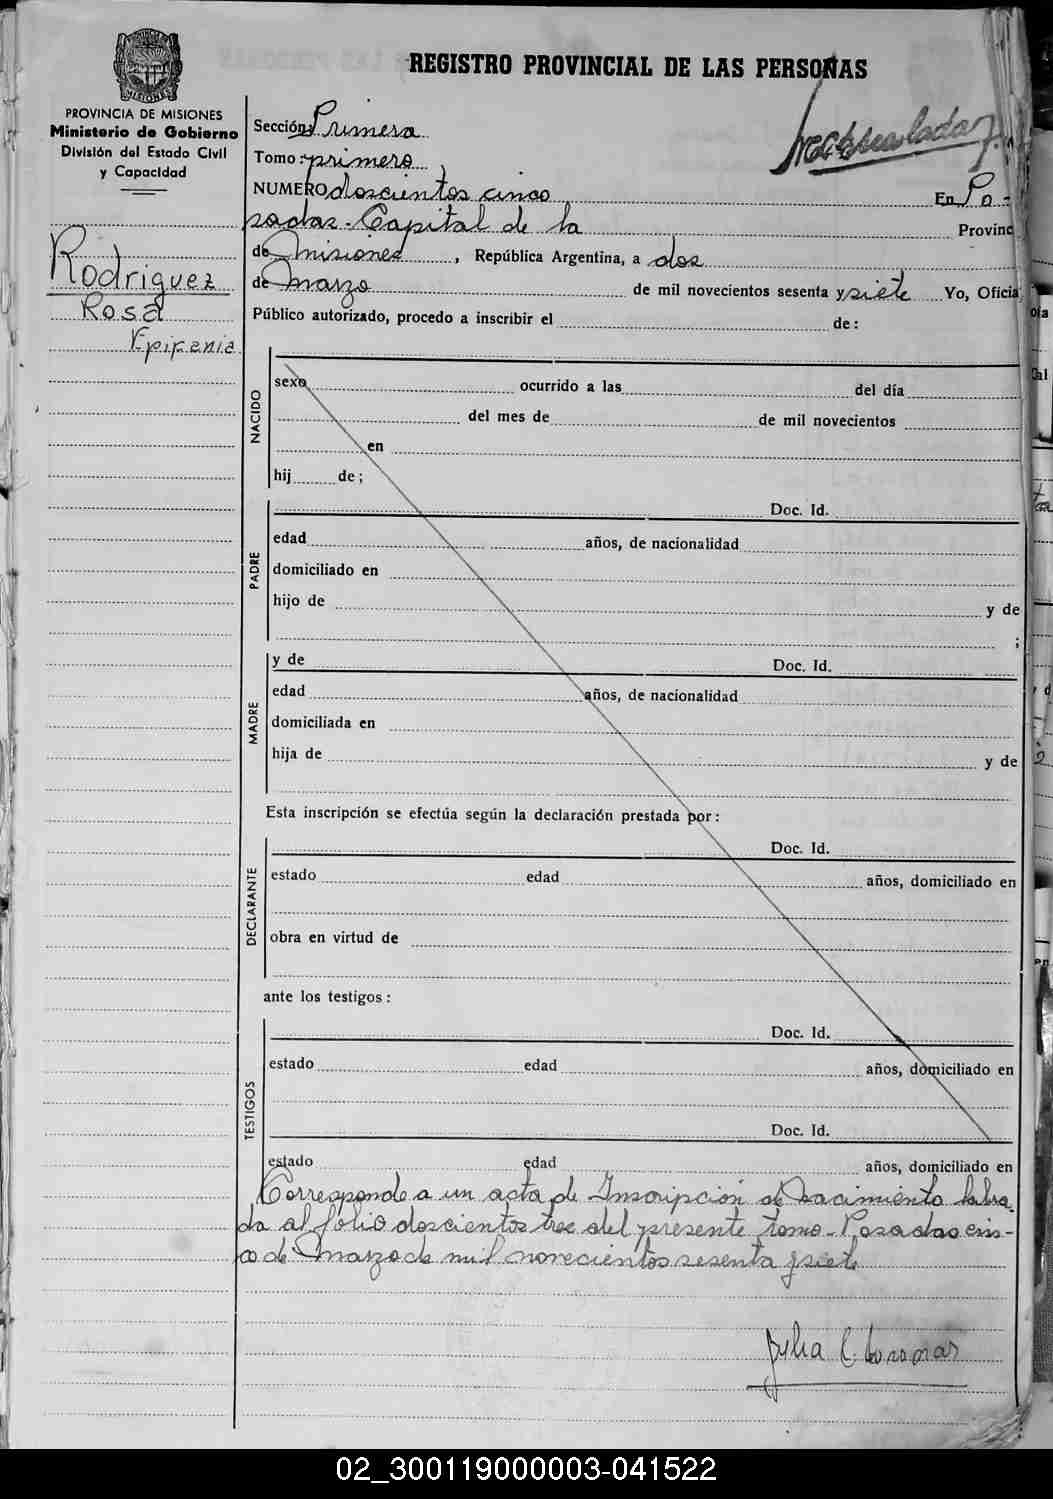 REGISTRO PROVINCIAL DE LAS PERSONAS
PROVINCIA DE MISIONES
Ministerio de Gobierno
División del Estado Civil
y Capacidad
Rodriguez
Rosa
Epifania
Sección: Primera
Tomo: primero
NUMERO doscientos cinco En Po-
sadas - Capital de la Provinc
de Misiones, República Argentina, a dos
de Marzo de mil novecientos sesenta y siete Yo, Oficia
Público autorizado, procedo a inscribir el de:
NACIDO
sexo ocurrido a las del día
del mes de de mil novecientos
en
hij de;
PADRE
Doc. Id.
edad años, de nacionalidad
domiciliado en
hijo de y de
;
MADRE
y de Doc. Id.
edad años, de nacionalidad
domiciliada en
hija de y de
Esta inscripción se efectúa según la declaración prestada por:
DECLARANTE
Doc. Id.
estado edad años, domiciliado en
obra en virtud de
ante los testigos:
TESTIGOS
Doc. Id.
estado edad años, domiciliado en
Doc. Id.
estado edad años, domiciliado en
Corresponde a un acta de Inscripción de Nacimiento labra
da al folio doscientos tres del presente tomo - Posadas cin-
co de Marzo de mil novecientos sesenta y siete
Julia C.
02_300119000003-041522